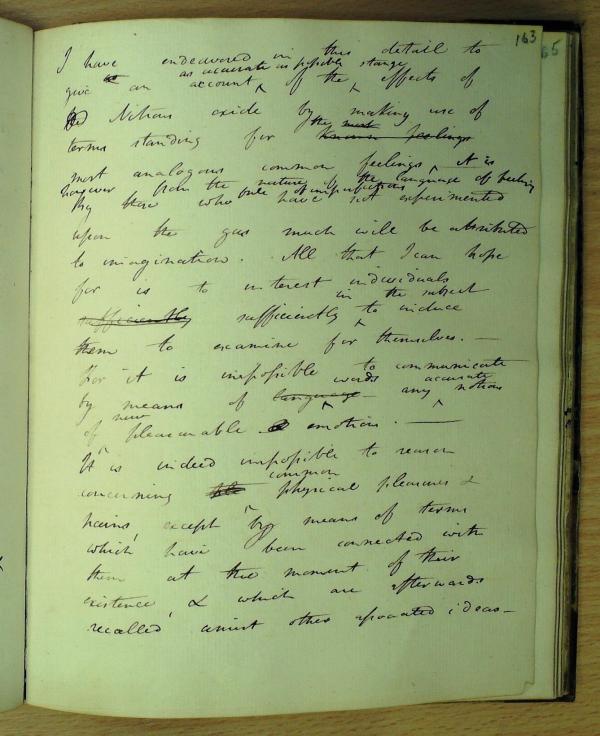 163
65
I have endeavored in this detail to
as accurate as possible strange
give an account of the effects of
Nitrous oxide by making use of
the most
terms standing for known feelings
most analogous common feelings it is
however from the nature of the language of feeling
but of imperfections
By those who have not experimented
upon the gas much will be attributed
to imagination. All that I can hope
for is to interest individuals
in the subject
sufficiently sufficiently to induce
them to examine for themselves. —
For it is impossible to communicate
words accurate
by means of language any notion
new
of pleasurable emotion. —
It is indeed impossible to reason
common
concerning physical pleasures &
pains, except by means of terms
which have been connected with
them at the moment of their
existence, & which are afterwards
recalled amist other associated ideas —